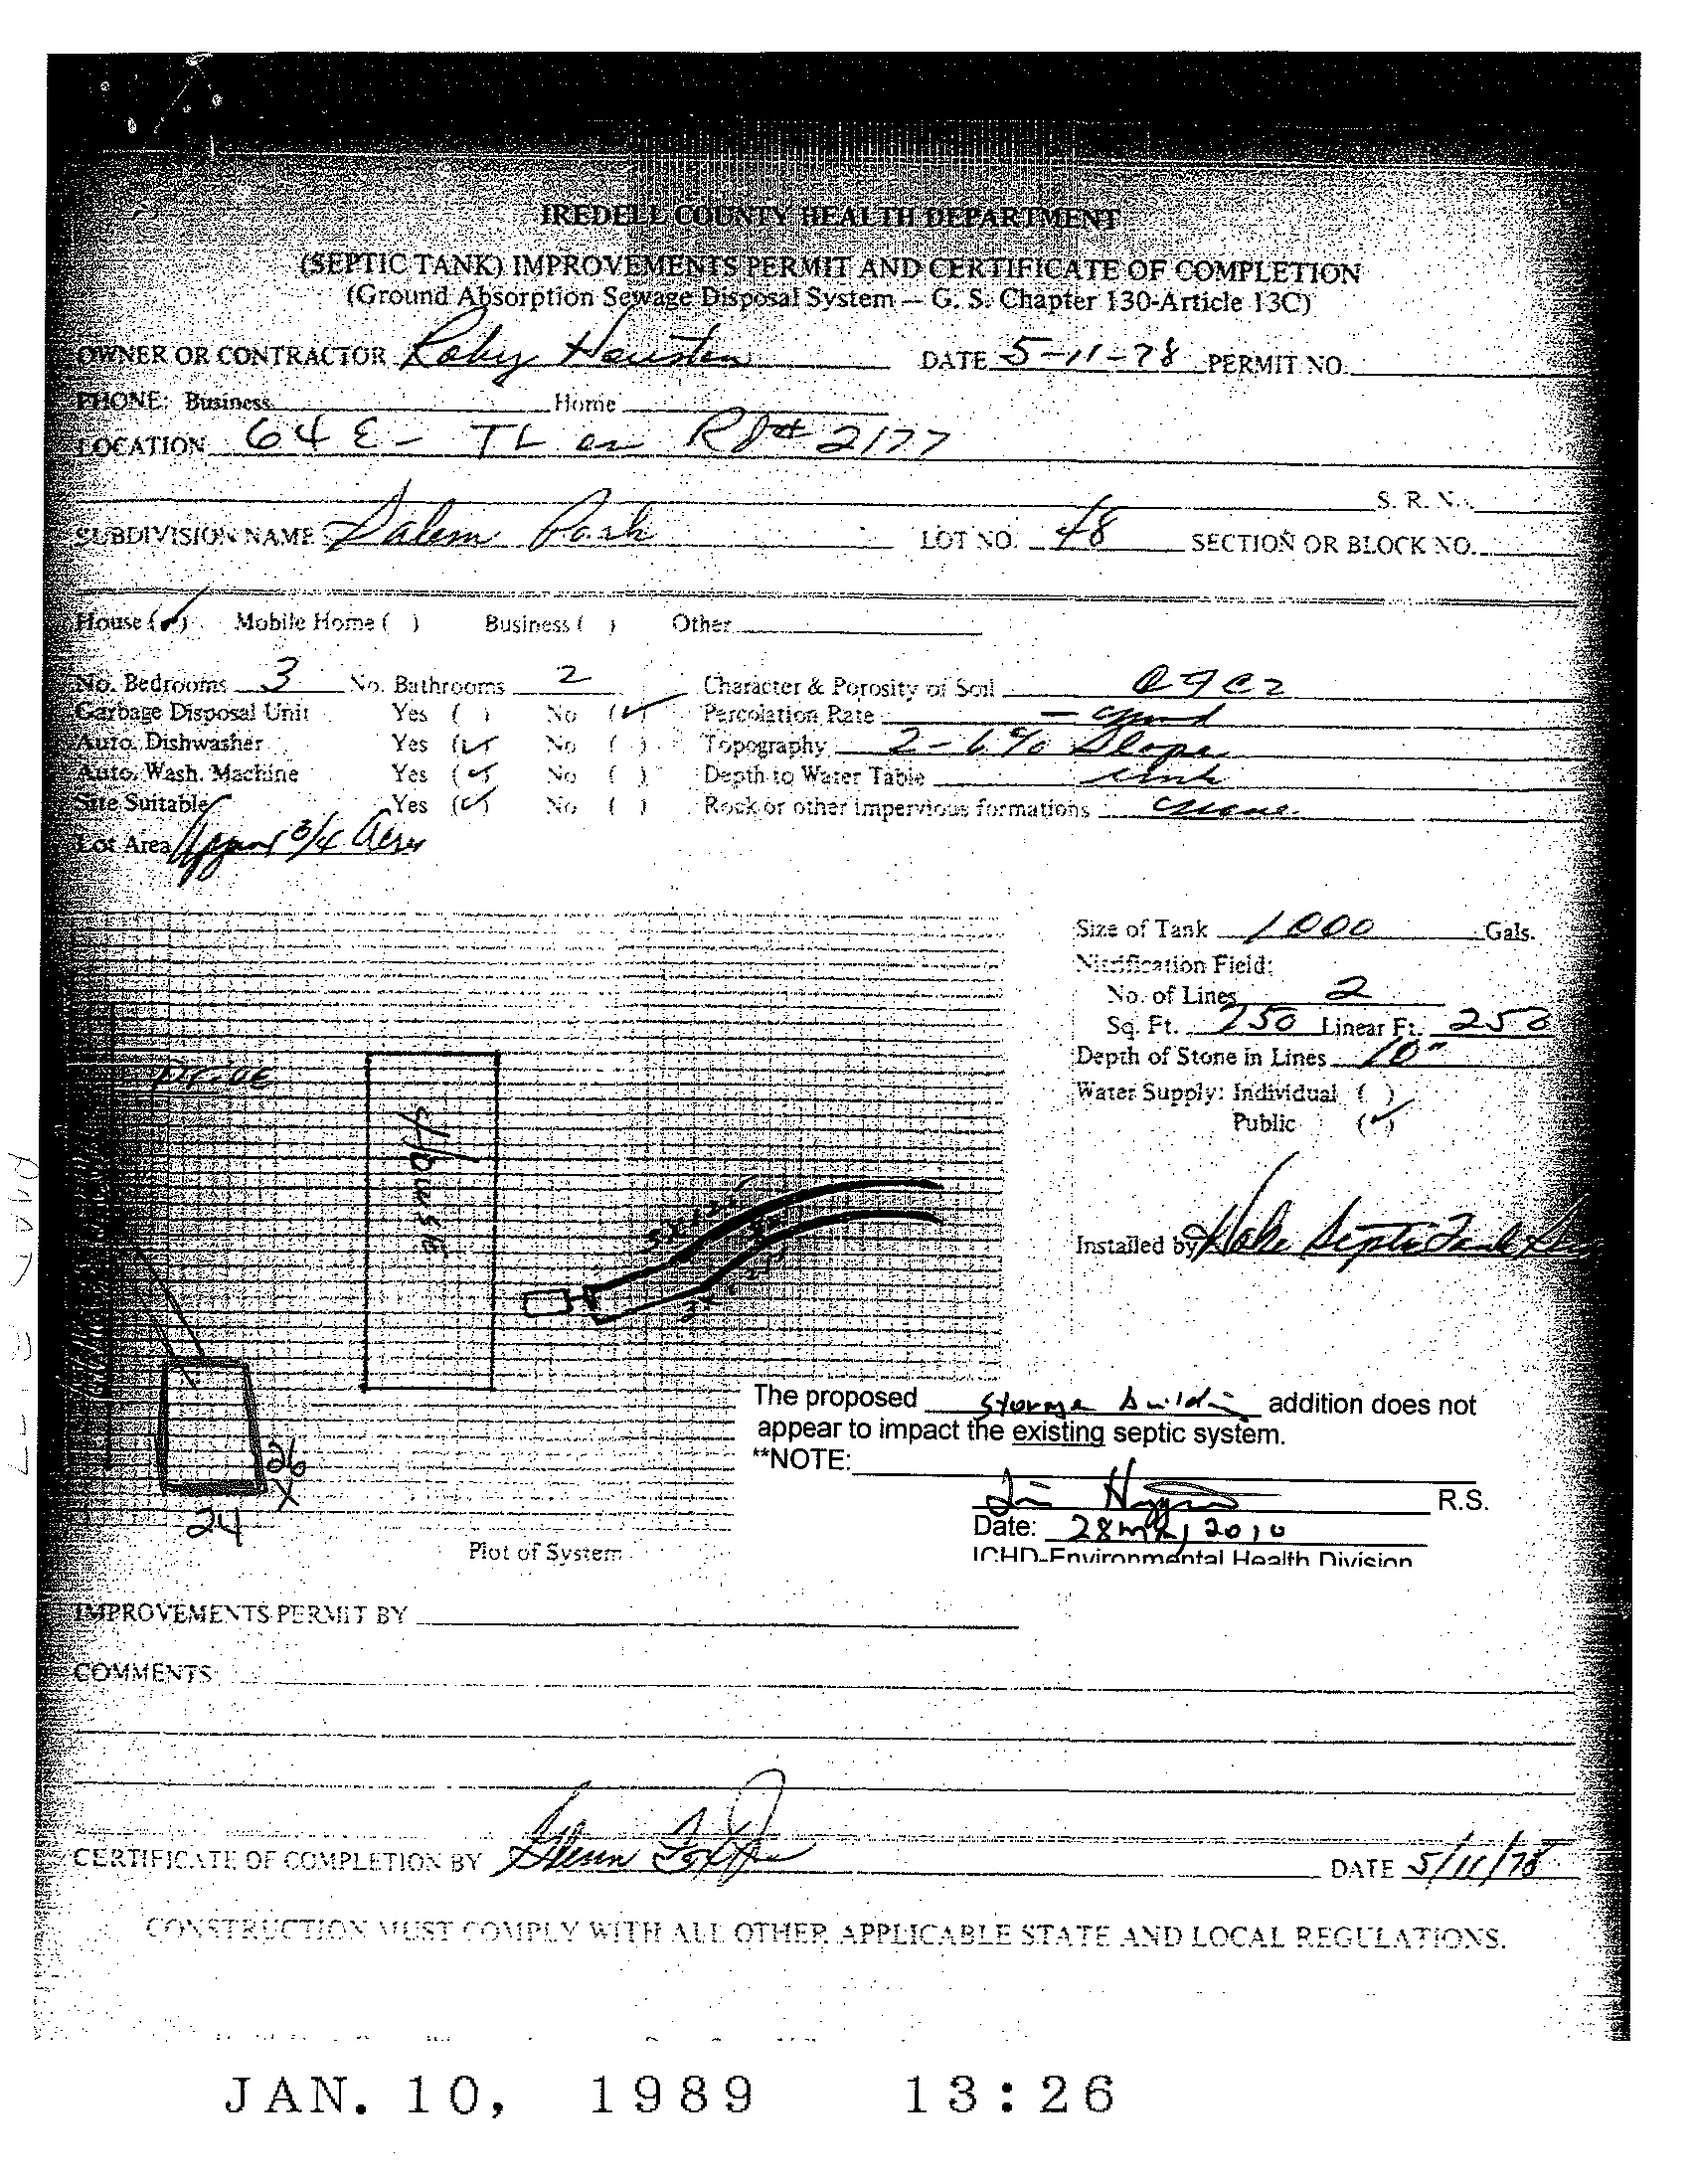 IREDELL COUNTY HEALTH DEPARTMENT
(SEPTIC TANK) IMPROVEMENTS PERMIT AND CERTIFICATE OF COMPLETION
(Ground Absorption Sewage Disposal System — G. S. Chapter 130-Article 13C)
OWNER OR CONTRACTOR Roby Houston DATE 5-11-78 PERMIT NO.
PHONE: Business Home
LOCATION 64 E - TL on Rd# 2177
S. R. N.
SUBDIVISION NAME Salem Park LOT NO. 48 SECTION OR BLOCK NO.
House (✓) Mobile Home ( ) Business ( ) Other
No. Bedrooms 3 No. Bathrooms 2 Character & Porosity of Soil
Garbage Disposal Unit Yes ( ) No (✓) Percolation Rate - good
Auto. Dishwasher Yes (✓) No ( ) Topography 2-6% Slope
Auto. Wash. Machine Yes (✓) No ( ) Depth to Water Table unk
Site Suitable Yes (✓) No ( ) Rock or other impervious formations none
Lot Area Approx 3/4 Acre
Size of Tank 1000 Gals.
Nitrification Field:
No. of Lines 2
Sq. Ft. 750 Linear Ft. 250
Depth of Stone in Lines 10"
Water Supply: Individual ( )
Public (✓)
Drive
House
Installed by Septic Tank
26
X
24
The proposed storage building addition does not
appear to impact the existing septic system.
**NOTE:
R.S.
Date: 28 May 2010
ICHD-Environmental Health Division
Plot of System
IMPROVEMENTS PERMIT BY
COMMENTS
CERTIFICATE OF COMPLETION BY Glenn DATE 5/11/78
CONSTRUCTION MUST COMPLY WITH ALL OTHER APPLICABLE STATE AND LOCAL REGULATIONS.
JAN. 10, 1989 13:26